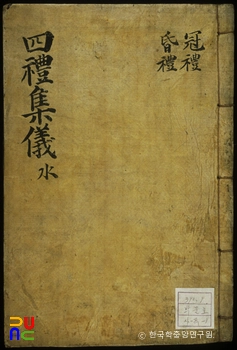 冠禮
昏禮
四禮集儀 水
ⓒ한국학중앙연구원